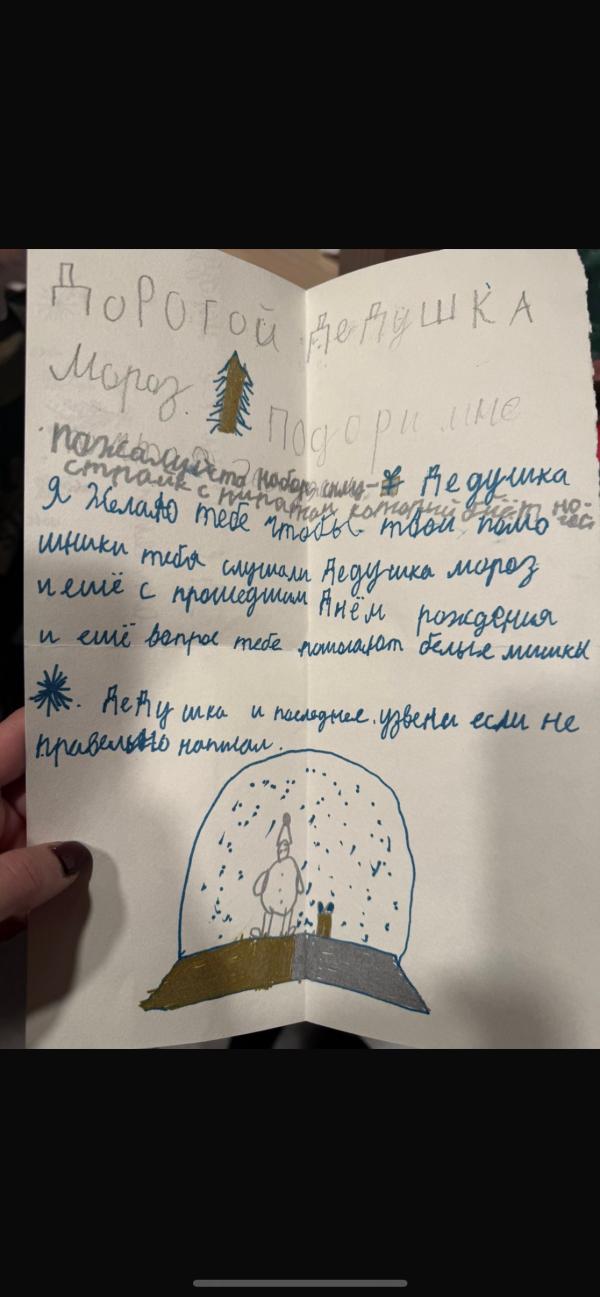 Дорогой Дедушка
Мороз. Подари мне
пожалуйста набор
страйк с пиратом который бьёт но-
гой
Дедушка
Я желаю тебе чтобы твои помо
шники тебя слушали Дедушка мороз
и ешё с прошедшим Днём рождения
и ешё вопрос тебе помогают белые мишки
Дедушка и последнее. узвени если не
правельно написал.